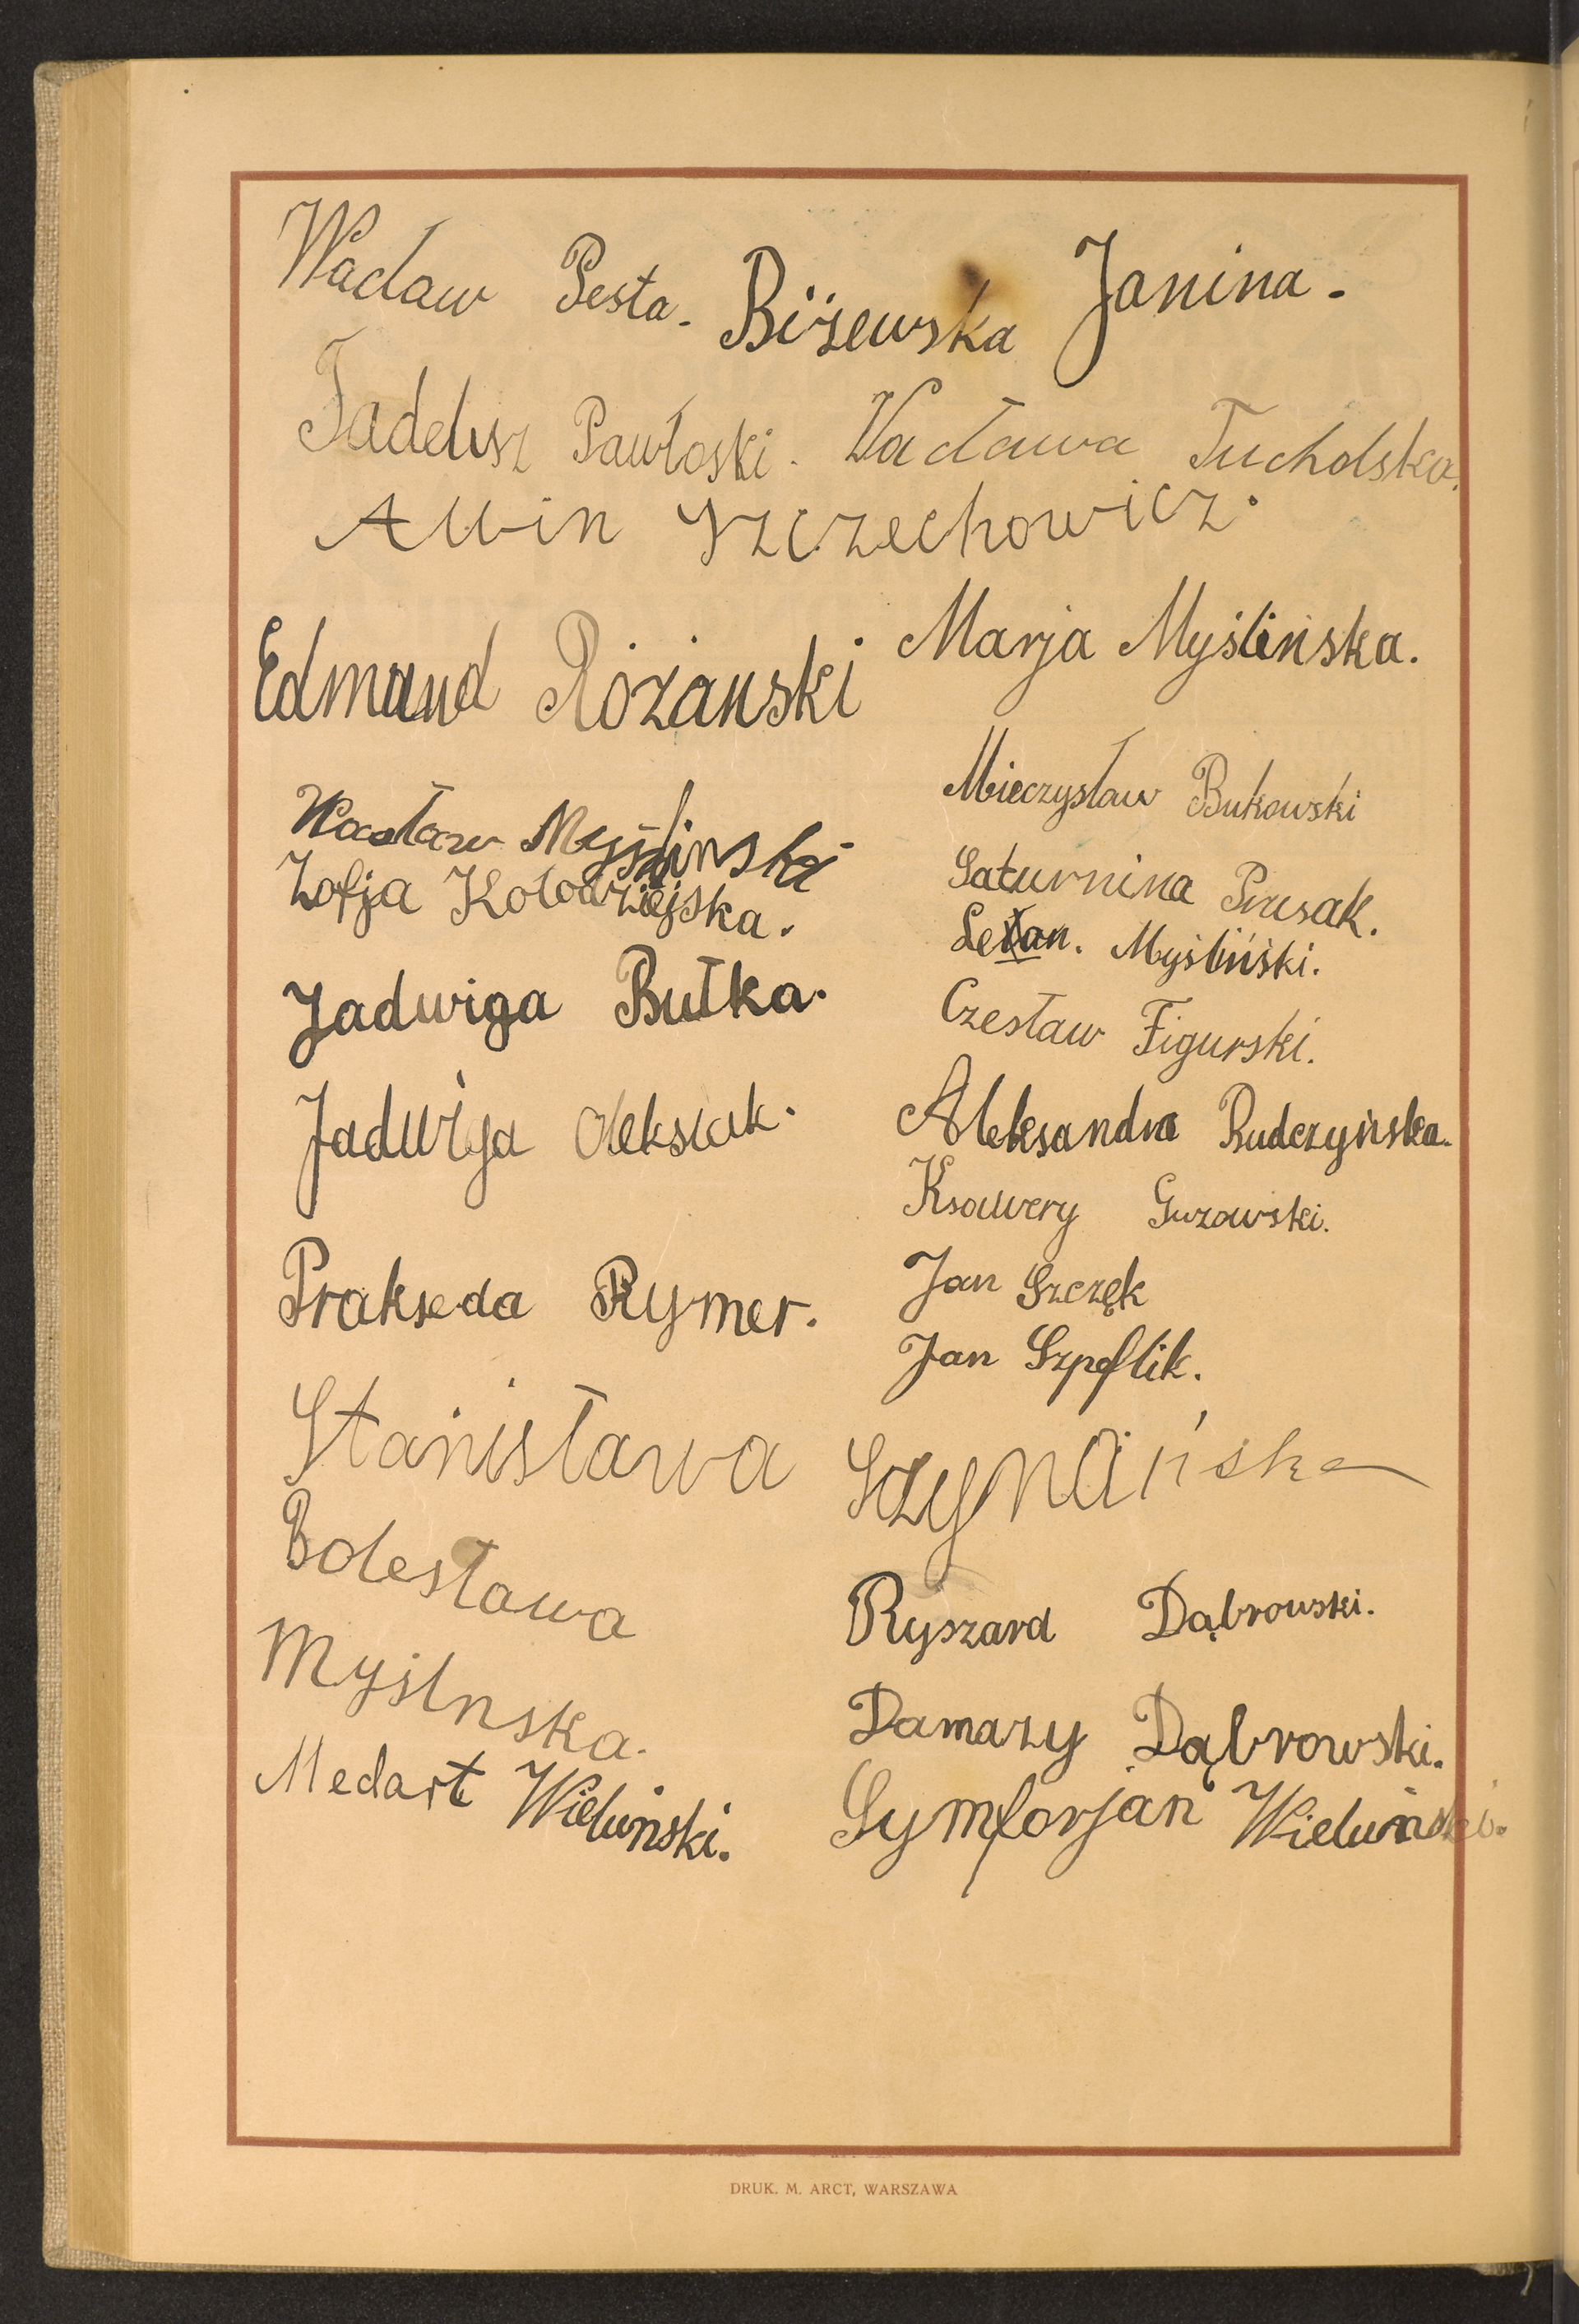 Wacław Pesta. Biżewska Janina.
Tadeusz Pawłoski. Wacława Tucholska.
Alwin Szczechowicz.
Edmund Różański Marja Myślińska.
Mieczysław Bukowski
Wacław Myśliński
Zofja Kołodziejska.
Saturnina Prusak.
Myśliński.
Jadwiga Bułka.
Czesław Figurski.
Jadwiga Oleksiak.
Aleksandra Rudczyńska.
Ksawery Guzowski.
Prakseda Rymer.
Jan Szczęk
Jan Szpeflik.
Stanisława Szymańska
Bolesława
Myślnska.
Ryszard Dąbrowski.
Damazy Dąbrowski.
Medart Wieluński.
Symforjan Wieluński.
DRUK. M. ARCT, WARSZAWA